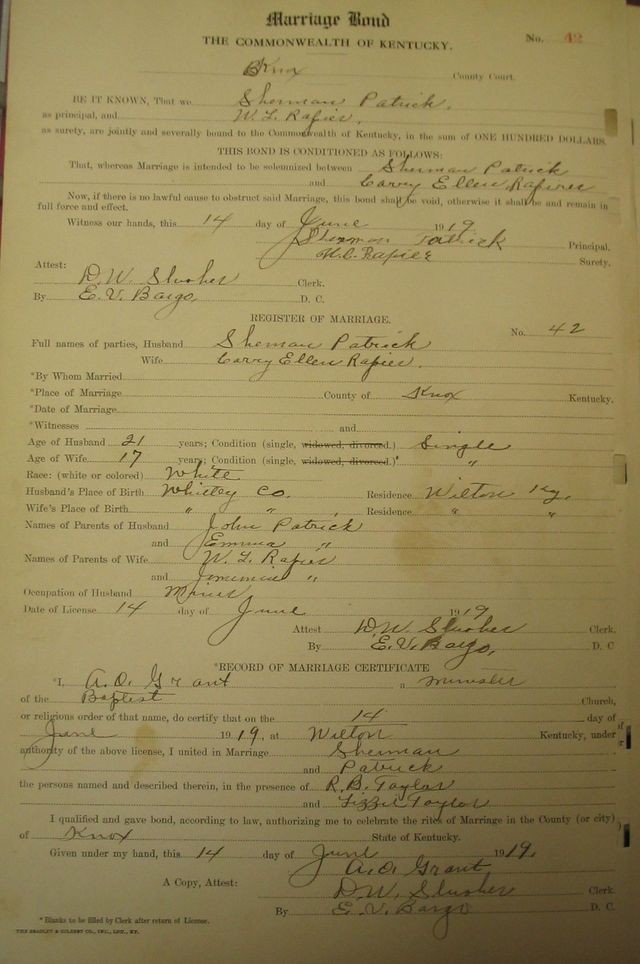 Marriage Bond
No. 42
THE COMMONWEALTH OF KENTUCKY.
Knox County Court.
BE IT KNOWN, That we Sherman Patrick,
as principal, and W. L. Rapier,
as surety, are jointly and severally bound to the Commonwealth of Kentucky, in the sum of ONE HUNDRED DOLLARS.
THIS BOND IS CONDITIONED AS FOLLOWS:
That, whereas Marriage is intended to be solemnized between Sherman Patrick
and Carry Ellen Rapier
Now, if there is no lawful cause to obstruct said Marriage, this bond shall be void, otherwise it shall be and remain in
full force and effect.
Witness our hands, this 14 day of June 1919
Sherman Patrick Principal.
Rapier Surety.
Attest:
D. W. Slusher Clerk.
By E. V. Bargo, D. C.
REGISTER OF MARRIAGE.
No. 42
Full names of parties, Husband Sherman Patrick
Wife Carry Ellen Rapier.
*By Whom Married
*Place of Marriage County of Knox Kentucky.
*Date of Marriage
*Witnesses and
Age of Husband 21 years; Condition (single, widowed, divorced.) Single
Age of Wife 17 years; Condition (single, widowed, divorced.) "
Race: (white or colored) White
Husband's Place of Birth Whitley Co. Residence Wilton Ky,
Wife's Place of Birth " " , Residence " "
Names of Parents of Husband John Patrick
and Emma "
Names of Parents of Wife W. L. Rapier
and "
Occupation of Husband Miner
Date of License 14 day of June 1919
Attest D. W. Slusher Clerk.
By E. V. Bargo, D. C
*RECORD OF MARRIAGE CERTIFICATE
*I, A. O. Grant a minister
of the Baptist Church,
or religious order of that name, do certify that on the 14 day of
June 1919, at Wilton Kentucky, under
authority of the above license, I united in Marriage Sherman
and Patrick
the persons named and described therein, in the presence of R. B. Taylor
and Lizzie Taylor
I qualified and gave bond, according to law, authorizing me to celebrate the rites of Marriage in the County (or city)
of Knox State of Kentucky.
Given under my hand, this 14 day of June 1919.
A. O. Grant
A Copy, Attest: D. W. Slusher Clerk.
By E. V. Bargo D. C.
*Blanks to be filled by Clerk after return of License.
THE BRADLEY & GILBERT CO., INC., LOU., KY.